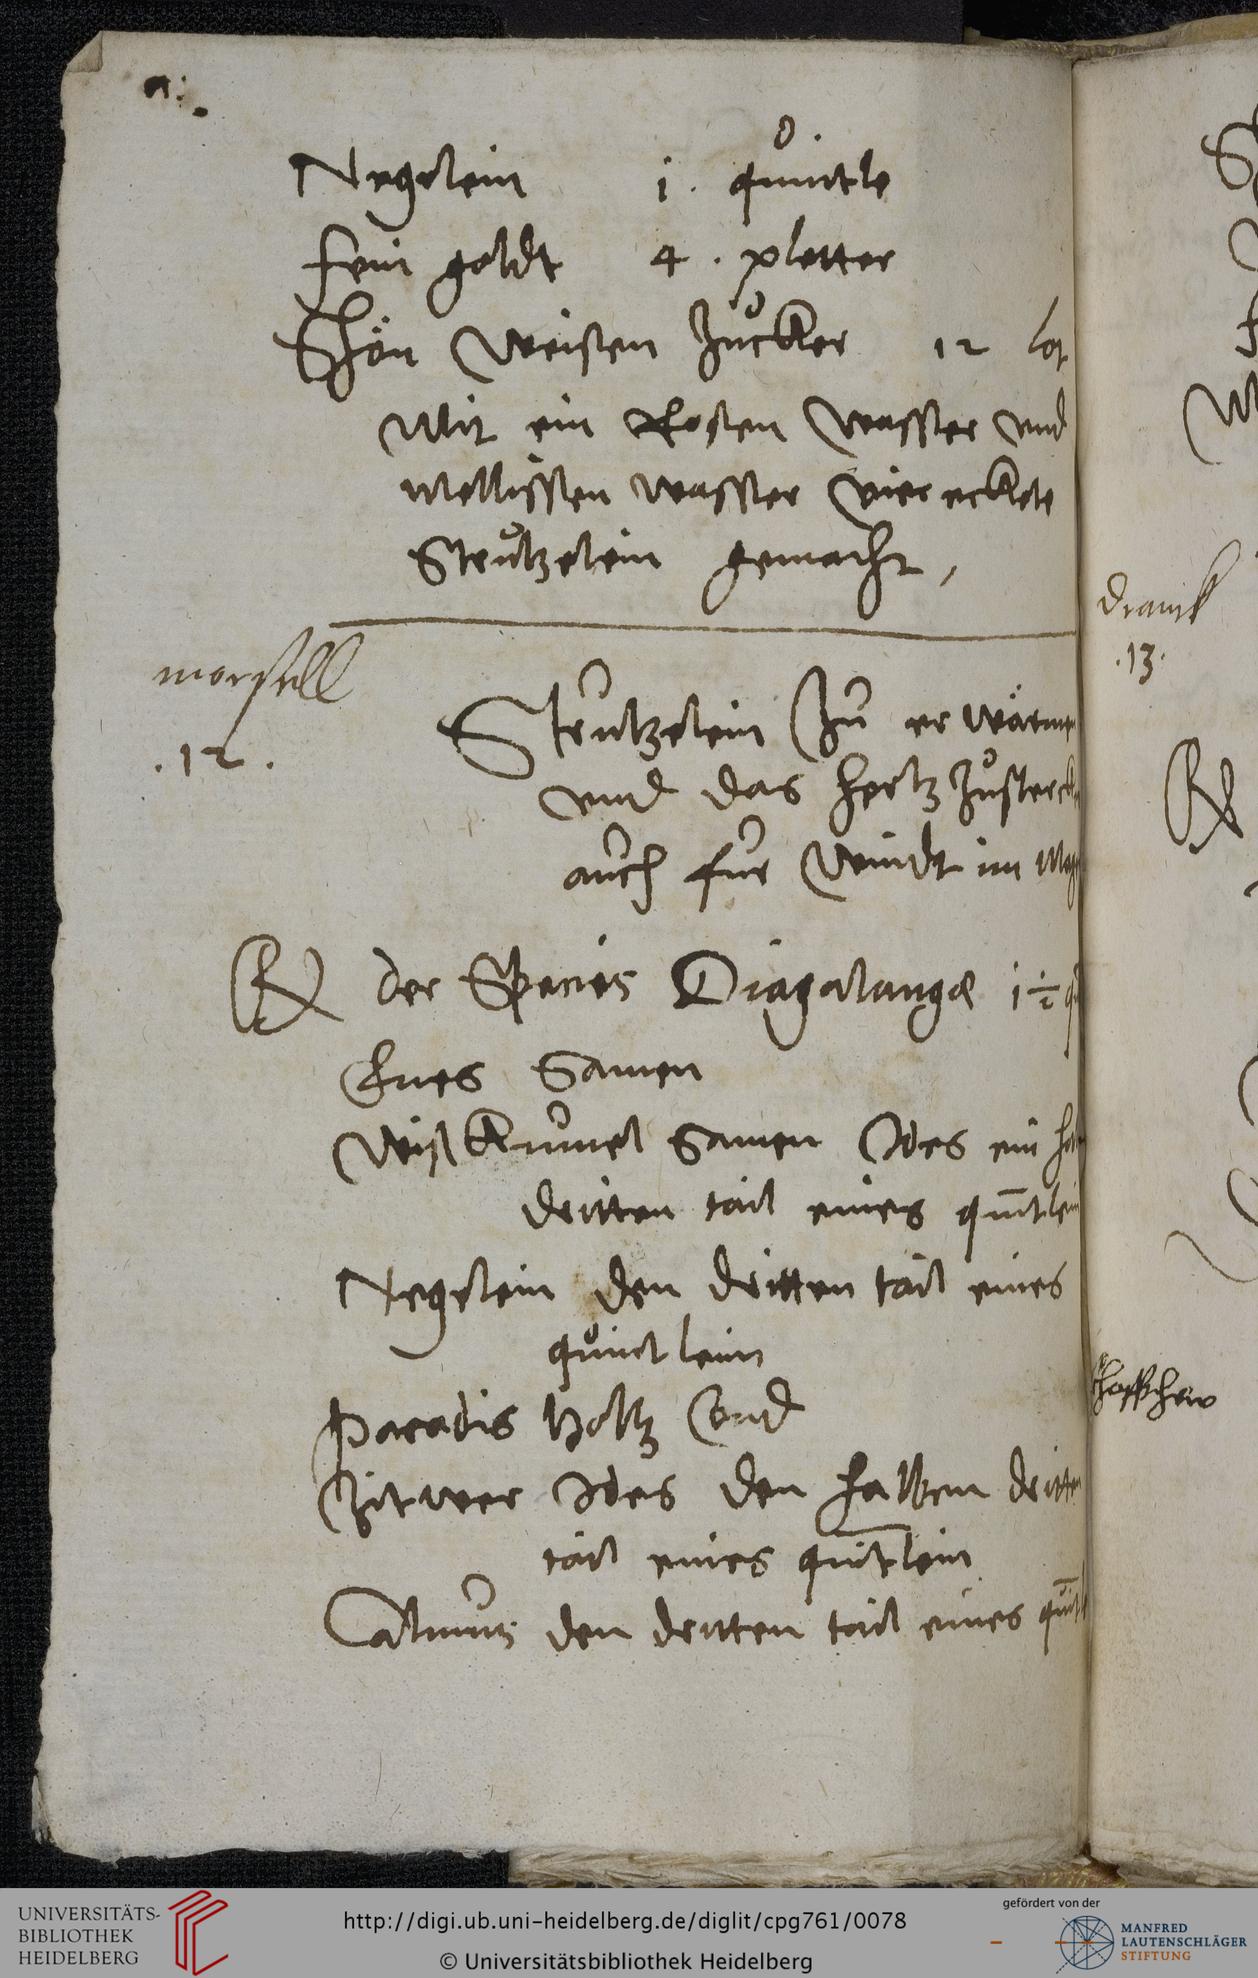 a:.
Negelein 1. quintle
fein goldt 4. pletter
Schön Weisen Zucker 12 lot
Mit ein Rosen Wasser vnd
mellissen wasser Vier eckete
Strutzelein gemacht,
morsell
.12.
Strutzelein Zu er wärme
vnd das hertz Zusterck
auch fur Windt im Mag
Rx der Species Diagalangæ 1½ q
Enes Samen
Wiskumel Samen Ides ein hal
dritten tail eines quitlein
Negelein den dritten tail eines
quintlein
Paradis holtz Vnd
Zitwer Ides den halben dritte
tail eines quitlein
Calmus den dritten tail eines quit
dranck
.13.
Rx
UNIVERSITÄTS-
BIBLIOTHEK
HEIDELBERG
http://digi.ub.uni-heidelberg.de/diglit/cpg761/0078
© Universitätsbibliothek Heidelberg
gefördert von der
MANFRED
LAUTENSCHLÄGER
STIFTUNG